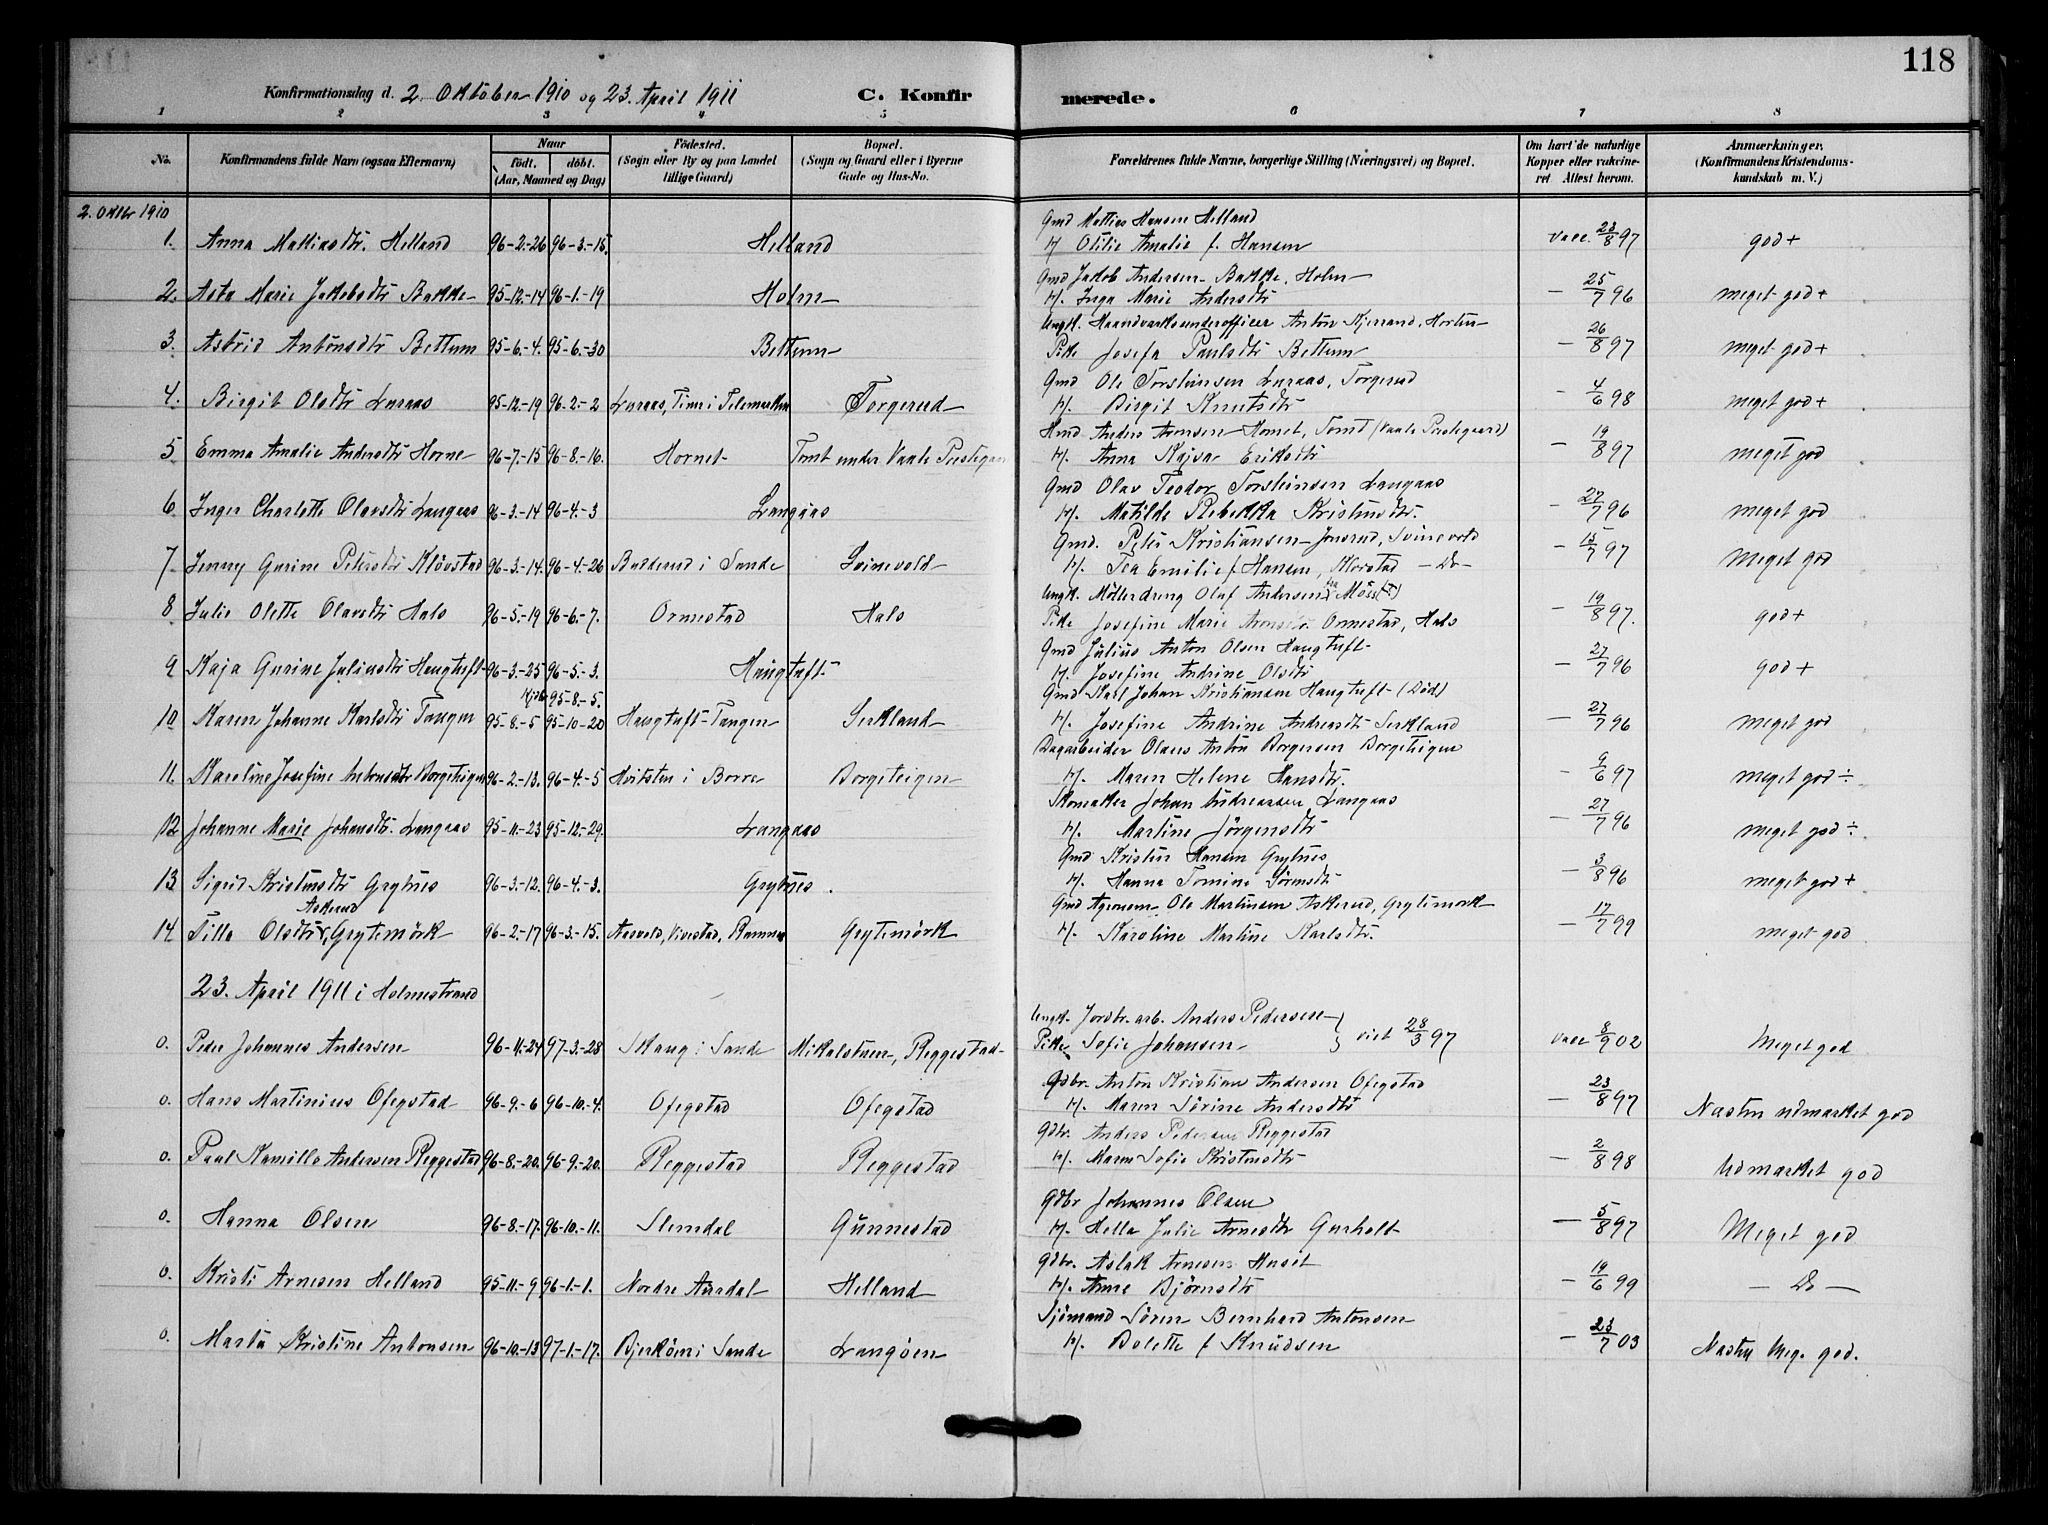 118
Konfirmationsdag d. 2. Oktober 1910 og 23. April 1911 C. Konfirmerede.
1 2 3 4 5 6 7 8
No. Konfirmandens fulde Navn (ogsaa Efternavn) Naar født. døbt. (Aar, Maaned og Dag) Fødested. (Sogn eller By og paa Landet tillige Gaard) Bopæl. (Sogn og Gaard eller i Byerne Gade og Hus-No. Forældrenes fulde Navne, borgerlige Stilling (Næringsvei) og Bopæl. Om havt de naturlige Kopper eller vakcineret. Attest herom. Anmærkninger. (Konfirmandens Kristendomskundskab m. V.)
2. Oktbr 1910
Gmd Mattias Hansen Helland
1. Anna Mattiasdtr. Helland 96-2-26 96-3-15. Helland H Otilie Amalie f. Hansen Vacc. 23/8 97 god +
Gmd Jakob Andersen Bakke, Holm
2. Asta Marie Jakobsdtr Bakke 95-12-14 96-1-19 Holm H. Inga Marie Andersdtr — 25/7 96 meget god +
Ungk. Haandværksunderofficer Anton Kjerrand, Horten
3. Astrid Antonsdtr Bettum 95-6-4. 95-6-30 Bettum Pike Josefa Paulsdtr Bettum — 26/8 97 meget god +
Gmd Ole Torsteinsen Luraas, Torgerud
4. Birgit Olsdtr Luraas 95-12-19 96-2-2 Luraas, Tinn i Telemarken Torgerud H. Birgit Knutsdtr — 4/6 98 meget god +
Hmd. Anders Arensen Hornet, Tomt (Vaale Prestegaard)
5 Emma Amalie Andersdtr Horne 96-7-15 96-8-16. Hornet Tomt under Vaale Prestegaar H. Anna Kajsa Eriksdtr — 19/8 97 meget god
Gmd Olav Teodor Torsteinsen Langaas
6. Inger Charlotte Olavsdtr Langaas 96-3-14 96-4-3 Langaas H. Matilde Rebekka Kristensdtr. — 27/7 96 meget god
Gmd. Peter Kristiansen Jonsrud, Svinevold
7. Jenny Gurine Petersdtr Kløvstad 96-3-14. 96-4-26 Bullerud i Sande Svinevold H. Tea Emilie f. Hansen, Klovstad — Do — — 15/7 97 Meget god
Ungk. Møllerdreng Olaf Andersen fra Moss
8 Julie Olette Olavsdtr Hals 96-5-19 96-6-7. Ormestad Hals Pike Josefine Marie Ormestad, Hals — 19/8 97. god +
Gmd Julius Anton Olsen Haugtuft
9 Kaja Gurine Juliusdtr Haugtuft 96-3-25 96-5-3. Haugtuft H. Josefine Andrine Olsdtr — 27/7 96 god +
Hjdbt. 95-8-5. Gmd Karl Johan Kristiansen Haugtuft (Død)
10 Karen Johanne Karlsdtr Tangen 95-8-5 95-10-20 Haugtuft-Tangen Serkland H. Josefine Andrine Andreasdtr Serkland — 27/7 96 meget god
Dagarbeider Olaus Anton Borgersen Borgeteigen
11. Karoline Josefine Antonsdtr Borgeteigen 96-2-13. 96-4-5 Hvitsten i Borre Borgeteigen H. Maren Helene Hansdtr. — 9/6 97 meget god ÷
Skomaker Johan Andreassen Langaas
12 Johanne Marie Johansdtr. Langaas 95-11-23 95-12-29. Langaas H. Martine Jørgensdtr — 27/7 96 meget god ÷
Gmd Kristen Hansen Grytnes
13 Sigrid Kristensdtr Grytnes 96-3-12. 96-4-3. Grytnes. H. Hanna Tomine Sørensdtr — 3/8 96 meget god +
Askerud Gmd Agronom Ole Martinsen Askerud, Grytemørk
14 Tilla Olsdtr, Grytemørk 96-2-17 96-3-15. Aasvold, Vivestad, Ramnes Grytemørk H. Karoline Martine Karlsdtr. — 17/7 99 meget god
23. April 1911 i Holmestrand
Ungk. Jordbr. arb. Anders Pedersen
0. Peder Johannes Andersen 96-11-24 97-3-28 Skaug i Sande Mikalstuen, Reggestad Pike Sofie Johansen } viet 28/3 97 Vacc 8/9 02 Meget god
Gdbr. Anton Kristian Andersen Ofegstad
0. Hans Martinius Ofegstad 96-9-6 96-10-4. Ofegstad Ofegstad H. Maren Sørine Andersdtr — 23/8 97 Næsten udmærket god
Gdbr. Anders Pedersen Reggestad
0. Paul Kamillo Andersen Reggestad 96-8-20. 96-9-20. Reggestad Reggestad H. Maren Sofie Kristensdtr — 2/8 98 Udmærket god
Gdbr Johannes Olsen
0. Hanna Olsen 96-8-17. 96-10-11. Slemdal Gunnestad H. Hella Julie Arnesdtr Gurholt — 5/8 97 Meget god
Gdbr. Aslak Arnesen Huset
0. Kristi Arnesen Helland 95-11-9 96-1-1. Nordre Aurdal Helland H. Anne Bjørnsdtr — 19/6 99 — Do —
Sjømand Søren Bernhard Antonsen
0. Marta Kristine Antonsen 96-10-13 97-1-17. Bjerkøen i Sande Langøen H. Bolette f Knudsen — 23/7 03 Næsten Meg. god.